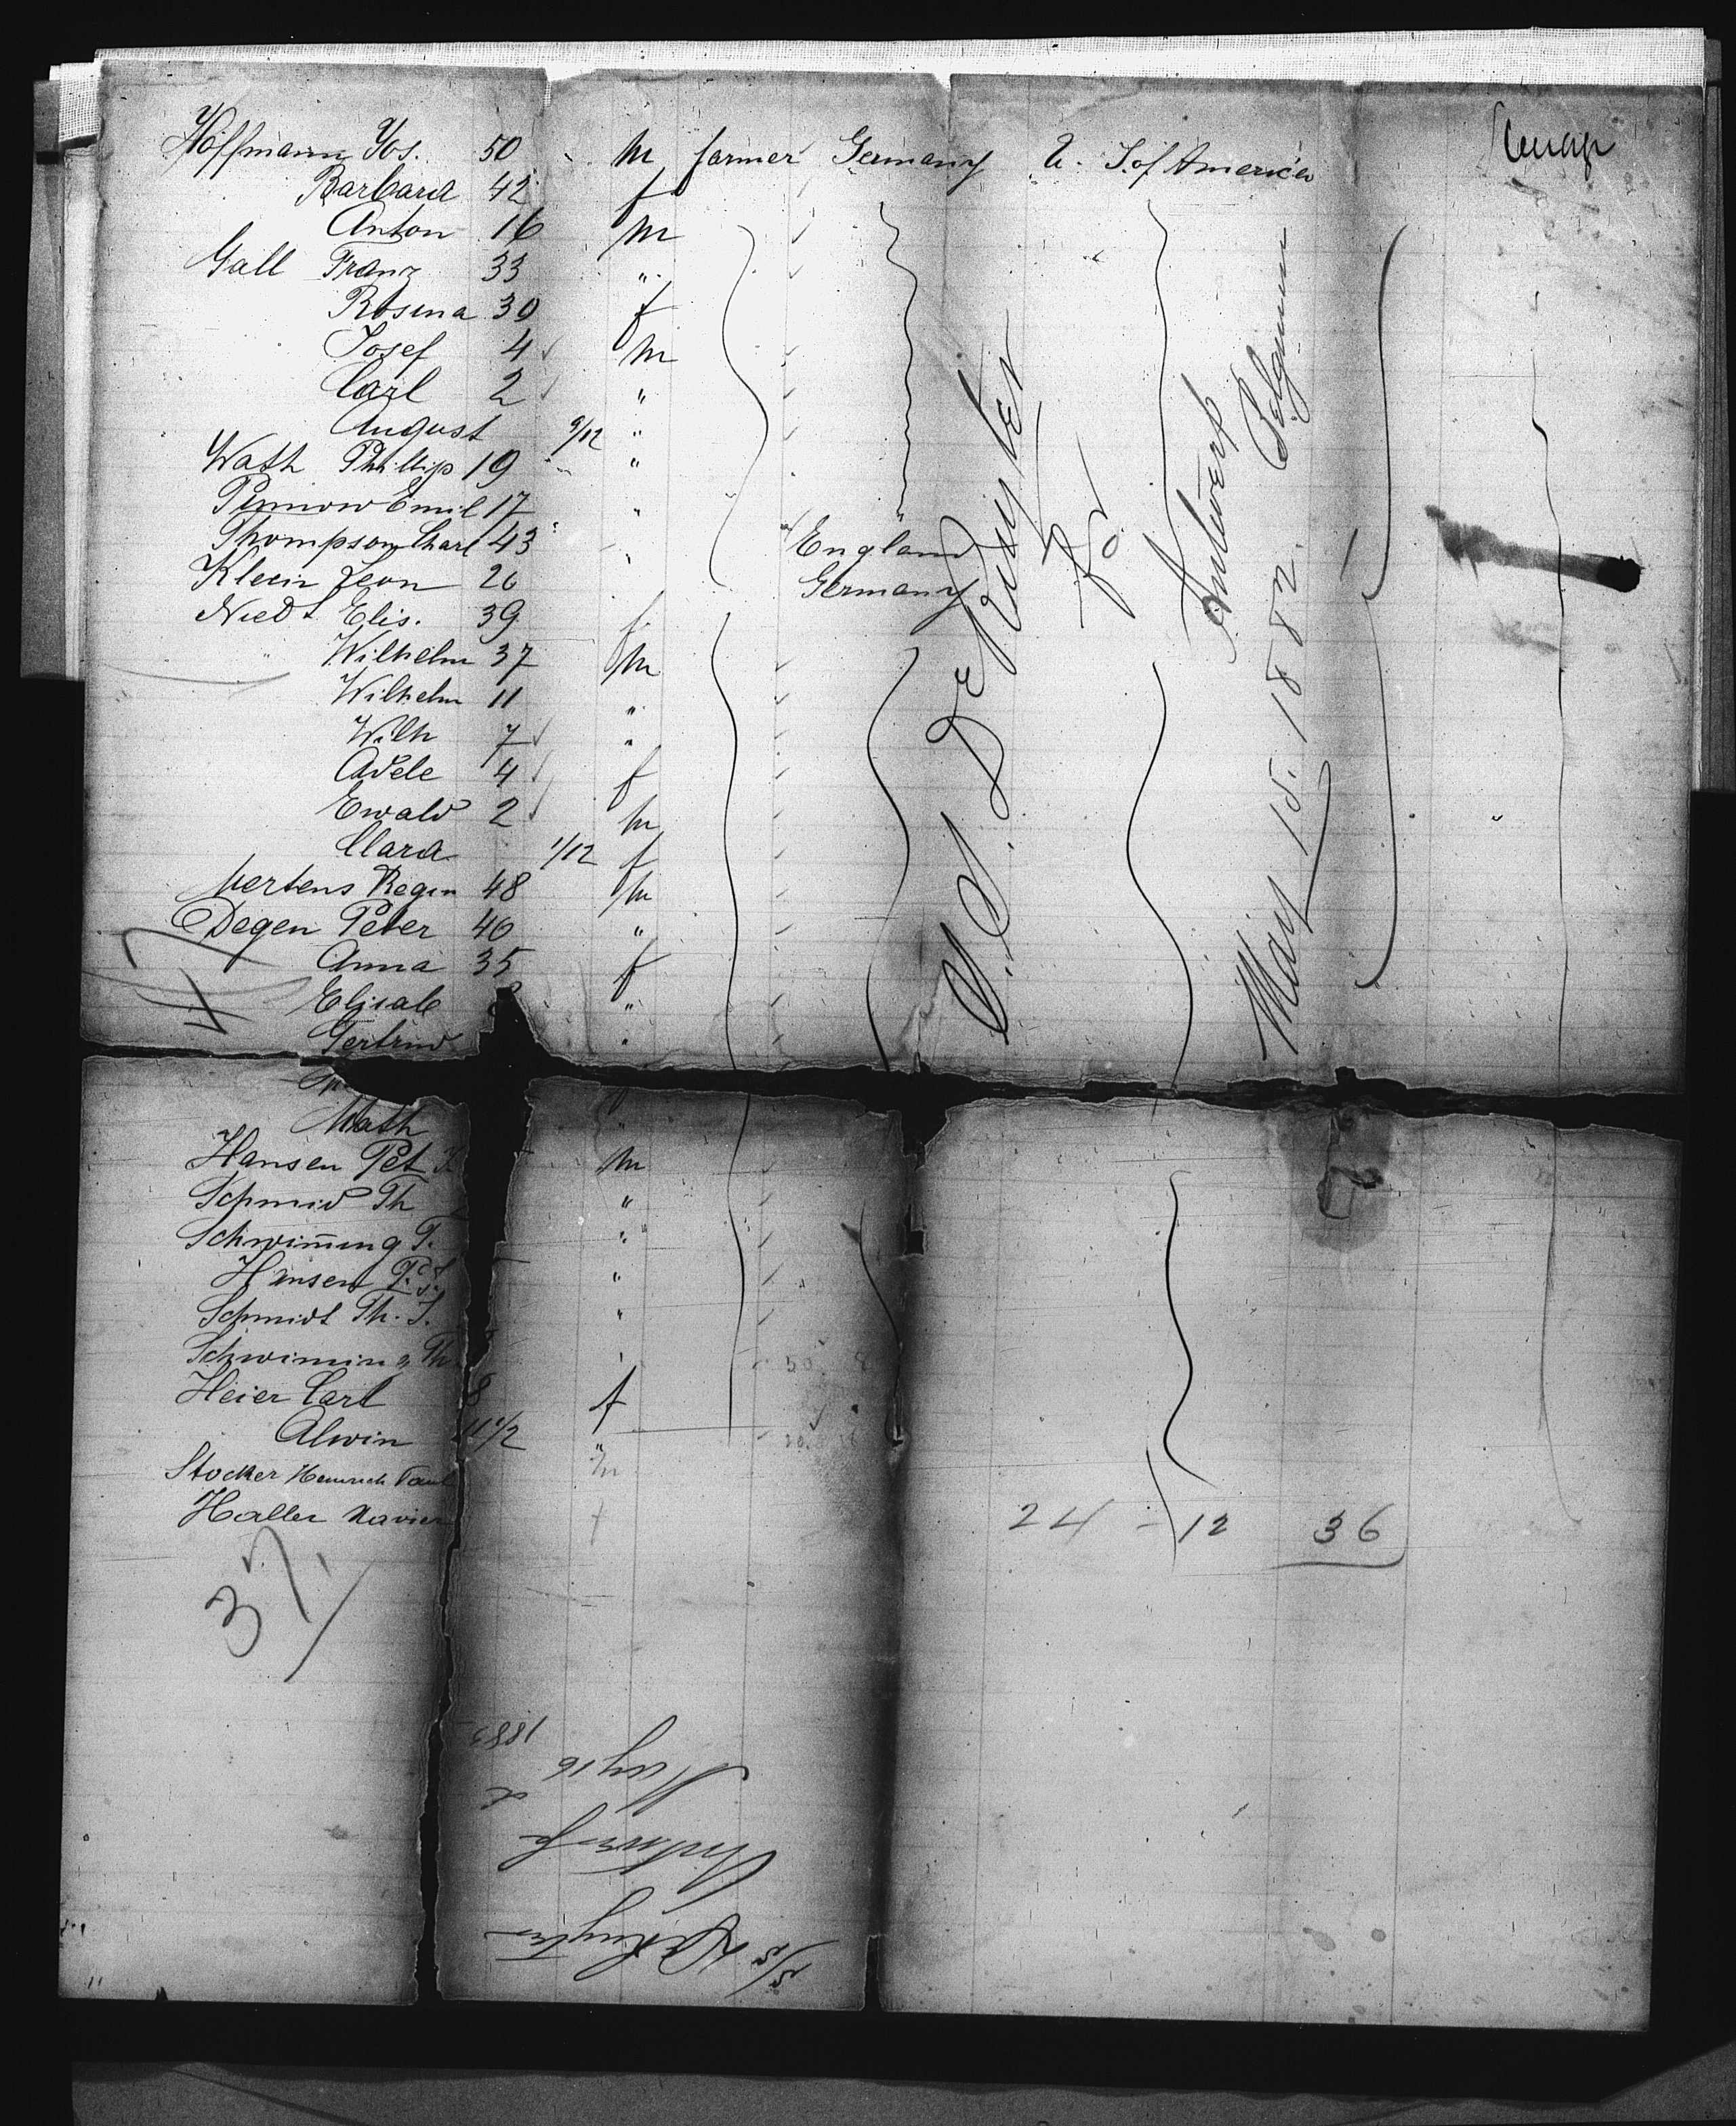 Hoffmann Jos. 50 m farmer Germany U. S. of America
Barbara 42 f
Anton 16 m
Gall Franz 33 "
Rosina 30 f
Josef 4 m
Carl 2 "
August 9/12 "
Wath Phillip 19 "
Emil 17 "
Thompson Charl 43 " England
Klein Leon 26 Germany
Niedt Elis. 39 f
Wilhelm 37 m
Wilhelm 11 "
Wilh 7 "
Adele 4 f
Ewald 2 m
Clara 1/12 f
Mertens Regin 48 m
Degen Peter 40 "
Anna 35 f
Elisab 8 "
Gertrud "
Math "
Hansen Pet m
Schmid Th "
Schwiming T. "
Hansen "
Schmidt Th. J. "
Schwiming Th "
Heier Carl 8 f
Alwin 11 1/2 "
Stocker Heinrich Paul m
Haller Xavier
24 - 12 36
37
47
S.S. De Ruyter
fo
Antwerp Belgium
May 15. 1882.
S/S De Ruyter
Antwerp
May 16